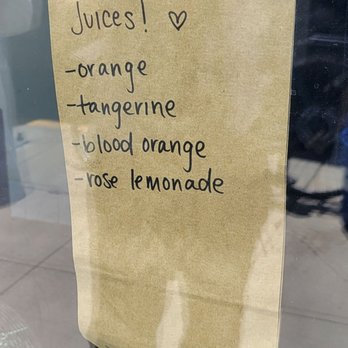 Juices! ♡
-orange
-tangerine
-blood orange
-rose lemonade